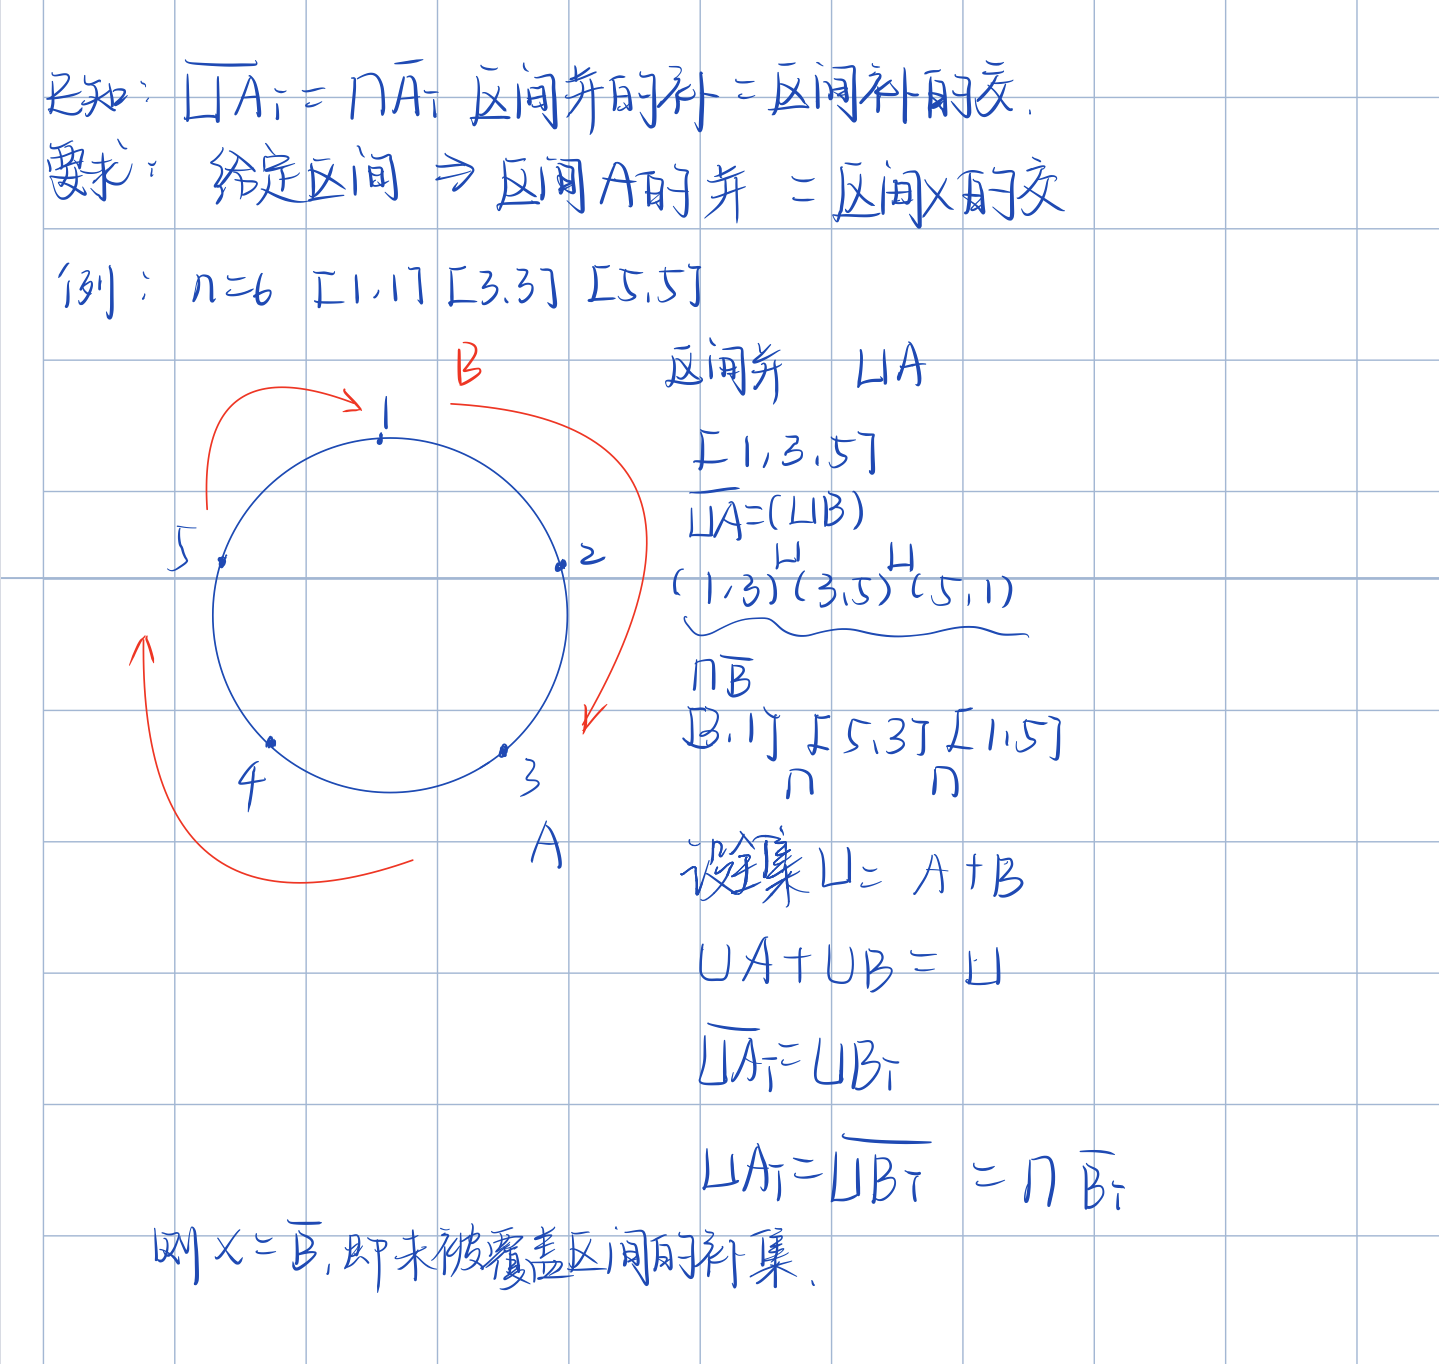 已知: \overline{∪A_i} = ∩\overline{A_i} 区间并的补 = 区间补的交.
要求: 给定区间 ⇒ 区间A的并 = 区间X的交
例: n=6 [1,1] [3,3] [5,5]
B
1
5
2
4
3
A
区间并 ∪A
[1,3,5]
\overline{∪A}=(∪B)
∪ ∪
(1,3)(3,5)(5,1)
∩\overline{B}
[3,1] [5,3] [1,5]
∩ ∩
设全集U= A+B
∪A+∪B = U
\overline{∪A_i}=∪B_i
∪A_i=\overline{∪B_i} = ∩\overline{B_i}
则X=\overline{B},即未被覆盖区间的补集.